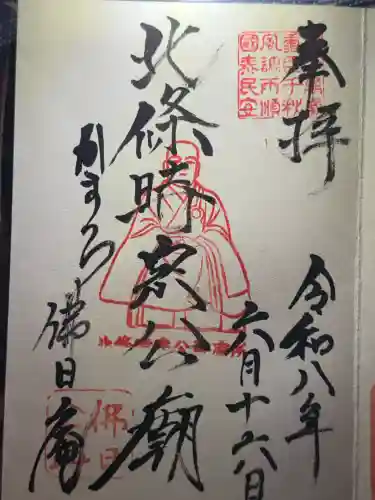 奉拝
令和八年
六月十六日
北條時宗公廟
かまくら
佛日庵
國泰民安
北條時宗公御廟所